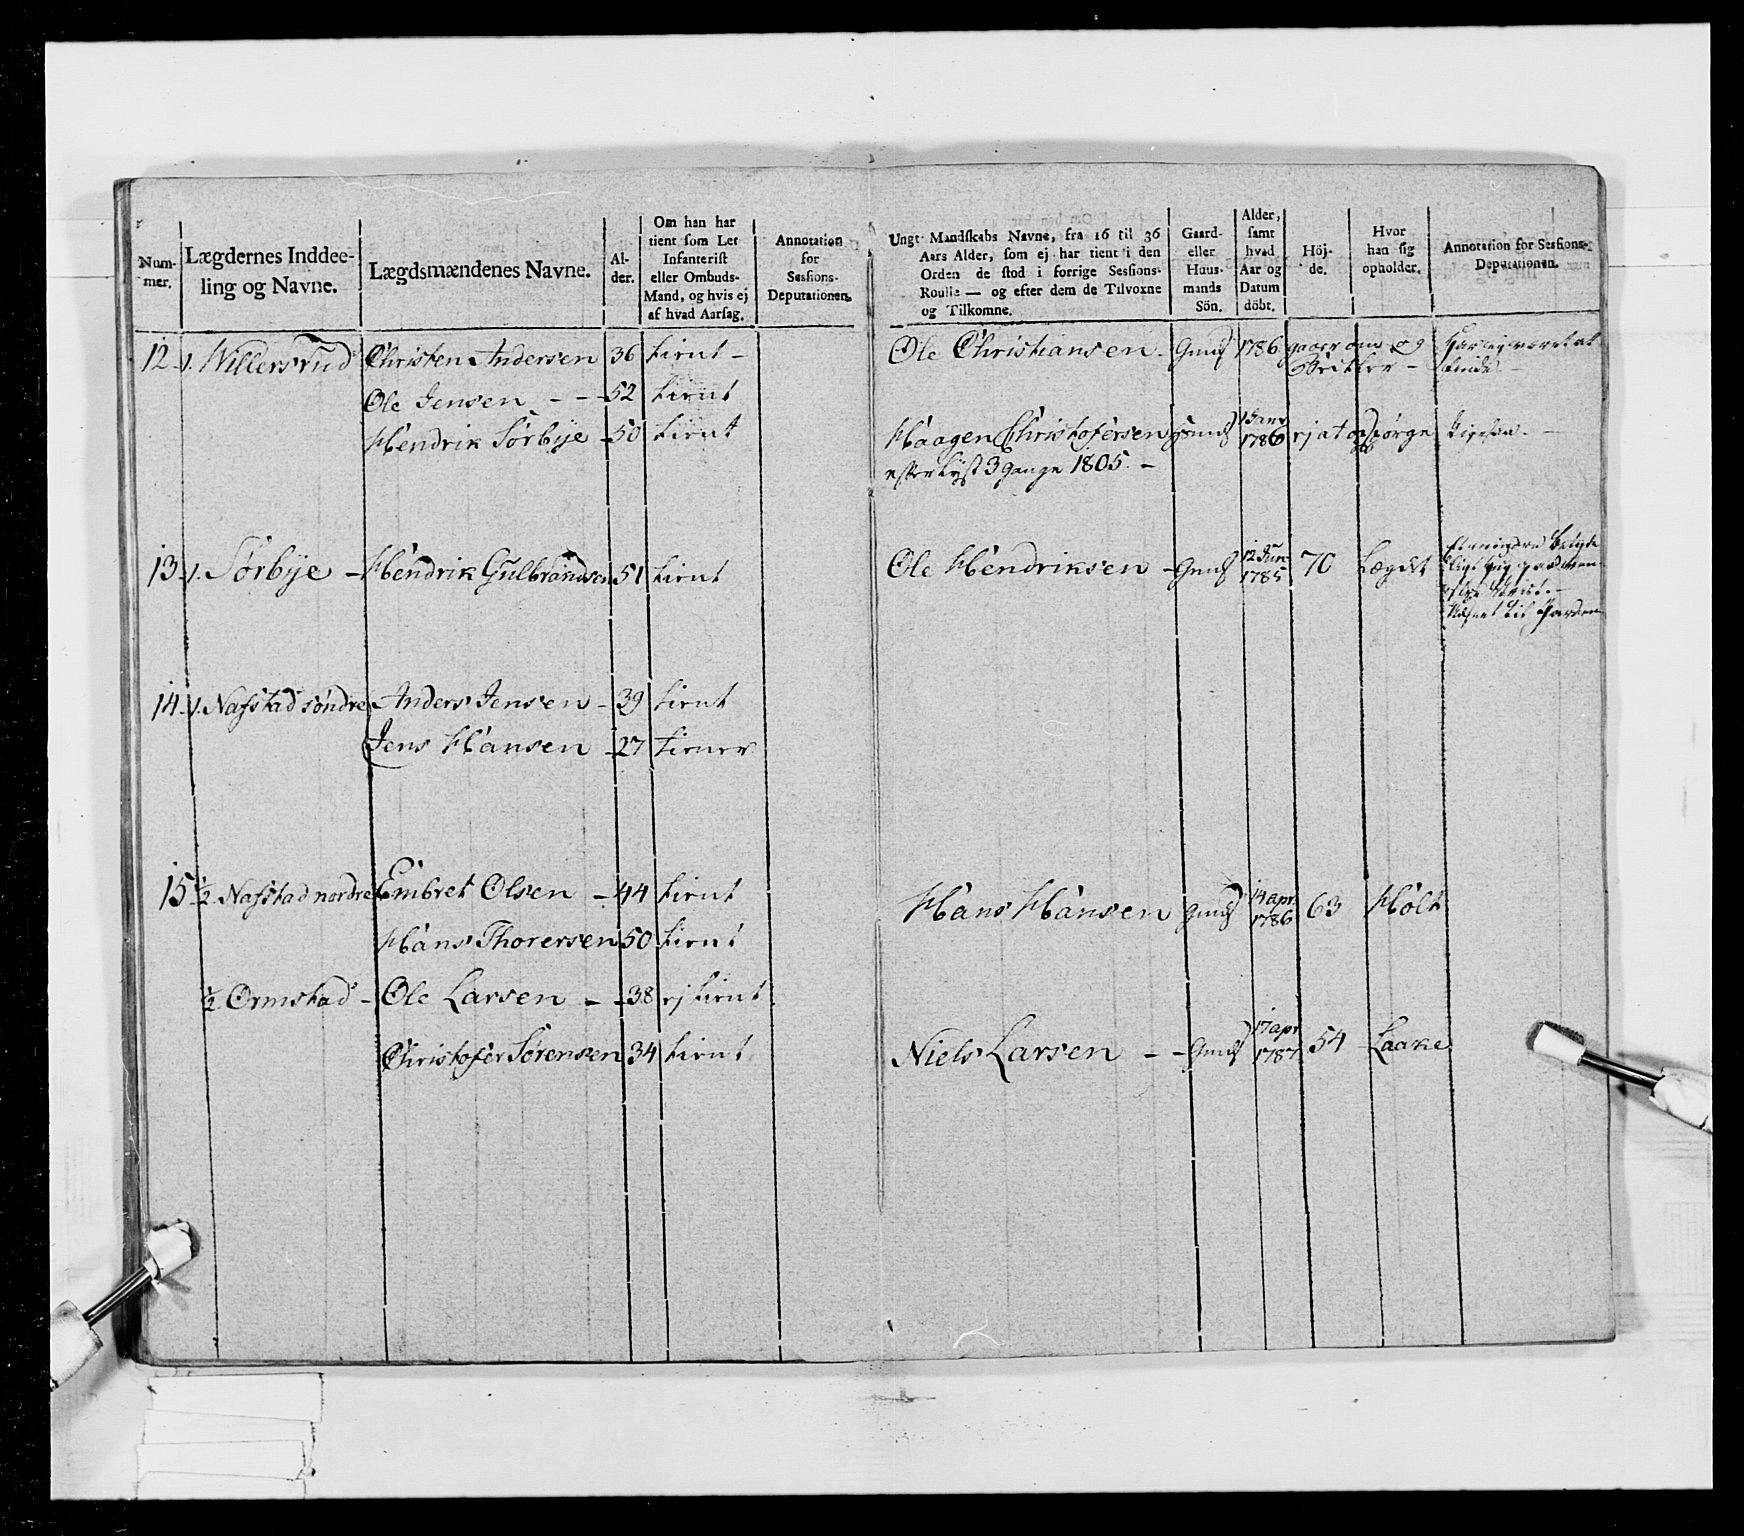 Num-
mer.
Lægdernes Inddee-
ling og Navne.
Lægdsmændenes Navne.
Al-
der.
Om han har
tient som Let
Infanterist
eller Ombuds-
Mand, og hvis ej
af hvad Aarsag.
Annotation
for
Sessions-
Deputationen.
Ungt Mandskabs Navne, fra 16 til 36
Aars Alder, som ej har tient i den
Orden de stod i forrige Sessions-
Roulle — og efter dem de Tilvoxne
og Tilkomne.
Gaard-
eller
Huus-
mands
Sön.
Alder,
samt
hvad
Aar og
Datum
döbt.
Höj-
de.
Hvor
han sig
opholder.
Annotation for Sessions-
Deputationen.
12 1. Willersrud Christen Andersen 36 tient -
Ole Jensen - - 52 tient
Hendrik Sørbye - 50 tient
Ole Christiansen - Gmds 1786 gaaer om og
Betler -
Haagen Christofersen Gmds 1 Janr 1786 ej at opspørge
efterlyst 3 gange 1805. -
13 1. Sørbye - Hendrik Gulbrandsen 51 tient
Ole Hendriksen - Gmds 12 Jun 1785 70 Lægdet
14 1. Nafstad søndre Anders Jensen - 39 tient
Jens Hansen - 27 tiener
15 1/2 Nafstad nordre Embret Olsen - 44 tient
Hans Thorersen 50 tient
Hans Hansen Gmds 14 apr 1786 63 Holt
1/2 Ormstad - Ole Larsen - - 38 ej tient
Christofer Sørensen 34 tient
Niels Larsen - - Gmds 17 apr 1787 54 Laake